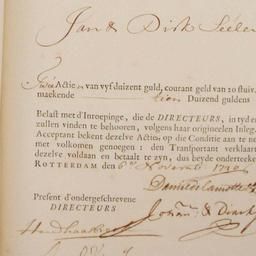 Jan & Dirk
Twee Actien van vyf duizent guld, courant geld van 20 stuiv.
maekende tien Duizend guldens
Belast met d'Inroepinge, die de DIRECTEURS, in tyd en
zullen vinden te behooren, volgens haar origineelen Inleg
Acceptant bekent dezelve Actien, op die Conditie aan te n
met volkomen genoegen: den Transportant verklaart
dezelve voldaan en betaalt te zyn, dus beyde onderteeke
ROTTERDAM den 6en Novemb
Present d'ondergeschrevene
DIRECTEUREN
& Dirck